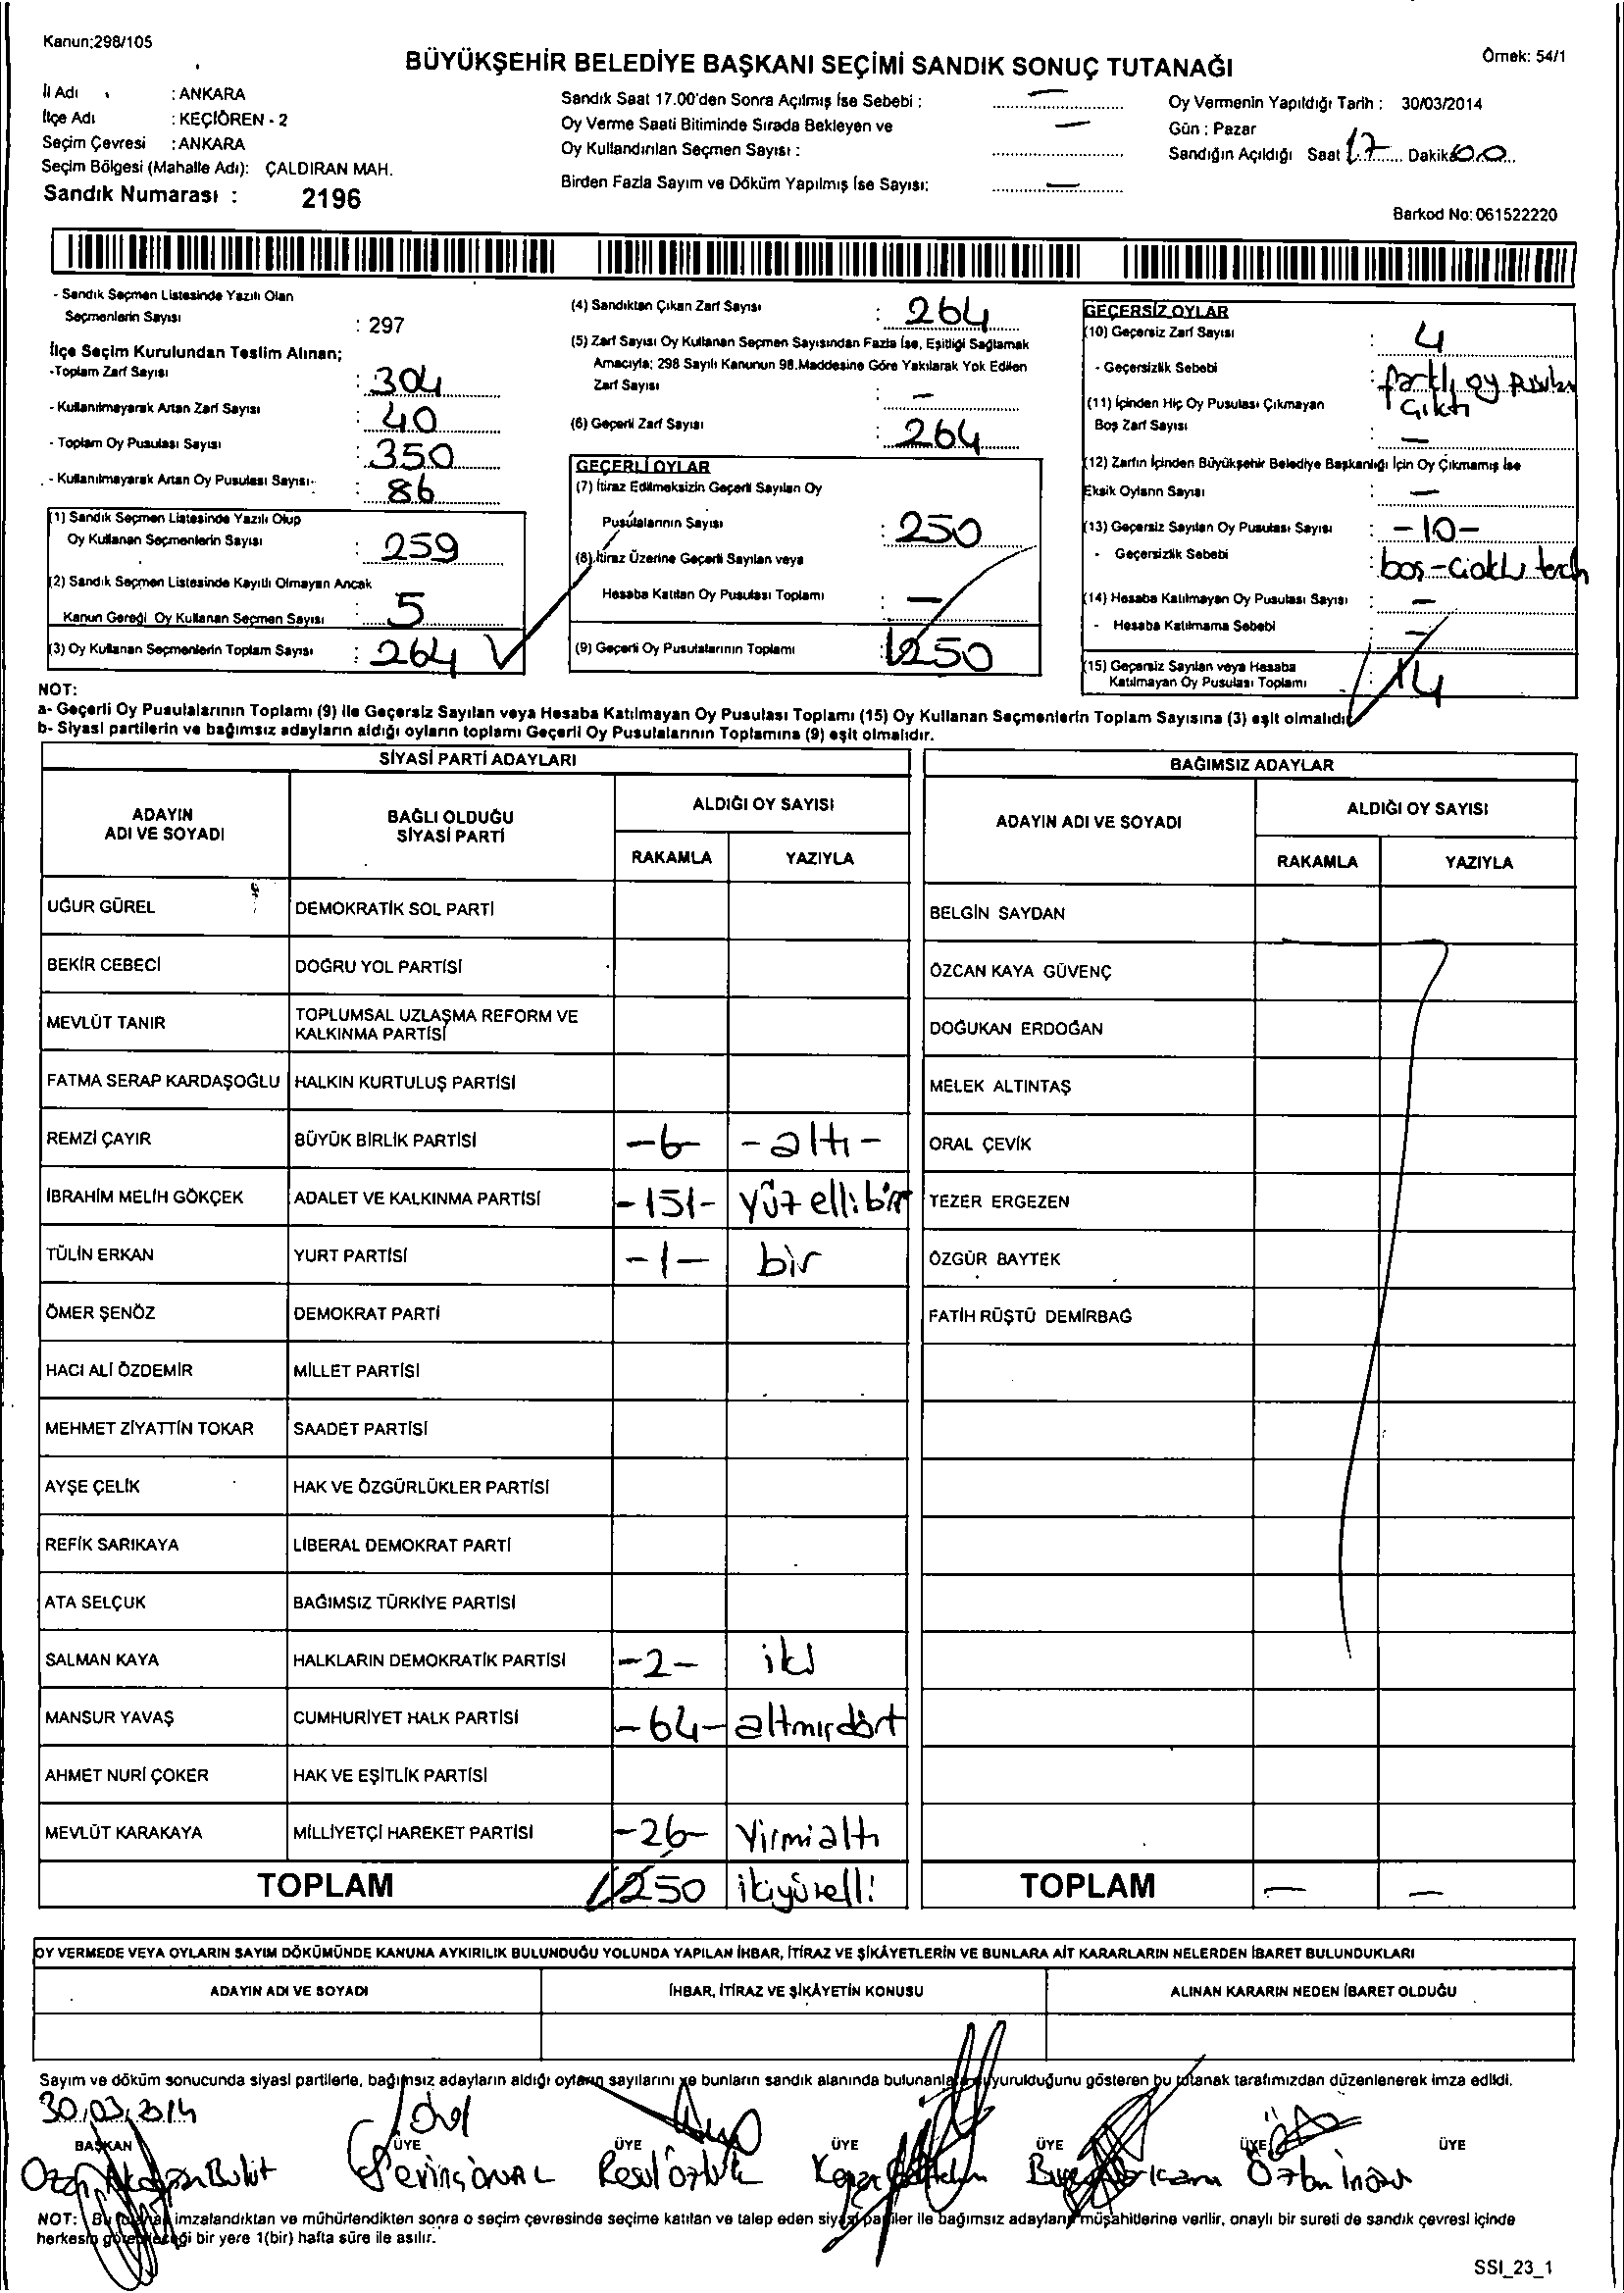 Kanun;298/105
BÜYÜKŞEHİR BELEDİYE BAŞKANI SEÇİMİ SANDIK SONUÇ TUTANAĞI
Örnek: 54/1
İl Adı : ANKARA
İlçe Adı : KEÇİÖREN - 2
Seçim Çevresi : ANKARA
Seçim Bölgesi (Mahalle Adı): ÇALDIRAN MAH.
Sandık Numarası : 2196
Sandık Saat 17.00'den Sonra Açılmış İse Sebebi : —
Oy Verme Saati Bitiminde Sırada Bekleyen ve —
Oy Kullandırılan Seçmen Sayısı :
Birden Fazla Sayım ve Döküm Yapılmış İse Sayısı: —
Oy Vermenin Yapıldığı Tarih : 30/03/2014
Gün : Pazar
Sandığın Açıldığı Saat 17 Dakika 00
Barkod No: 061522220
- Sandık Seçmen Listesinde Yazılı Olan
Seçmenlerin Sayısı : 297
İlçe Seçim Kurulundan Teslim Alınan;
-Toplam Zarf Sayısı : 304
- Kullanılmayarak Artan Zarf Sayısı : 40
- Toplam Oy Pusulası Sayısı : 350
- Kullanılmayarak Artan Oy Pusulası Sayısı : 86
(1) Sandık Seçmen Listesinde Yazılı Olup
Oy Kullanan Seçmenlerin Sayısı : 259
(2) Sandık Seçmen Listesinde Kayıtlı Olmayan Ancak
Kanun Gereği Oy Kullanan Seçmen Sayısı : 5
(3) Oy Kullanan Seçmenlerin Toplam Sayısı : 264
(4) Sandıktan Çıkan Zarf Sayısı : 264
(5) Zarf Sayısı Oy Kullanan Seçmen Sayısından Fazla İse, Eşitliği Sağlamak
Amacıyla; 298 Sayılı Kanunun 98.Maddesine Göre Yakılarak Yok Edilen
Zarf Sayısı : —
(6) Geçerli Zarf Sayısı : 264
GEÇERLİ OYLAR
(7) İtiraz Edilmeksizin Geçerli Sayılan Oy
Pusulalarının Sayısı : 250
(8) İtiraz Üzerine Geçerli Sayılan veya
Hesaba Katılan Oy Pusulası Toplamı : —
(9) Geçerli Oy Pusulalarının Toplamı : 250
GEÇERSİZ OYLAR
(10) Geçersiz Zarf Sayısı : 4
- Geçersizlik Sebebi : farklı oy
çıktı
(11) İçinden Hiç Oy Pusulası Çıkmayan
Boş Zarf Sayısı : —
(12) Zarfın İçinden Büyükşehir Belediye Başkanlığı İçin Oy Çıkmamış İse
Eksik Oyların Sayısı : —
(13) Geçersiz Sayılan Oy Pusulası Sayısı : -10-
- Geçersizlik Sebebi : boş-
(14) Hesaba Katılmayan Oy Pusulası Sayısı : —
- Hesaba Katılmama Sebebi : —
(15) Geçersiz Sayılan veya Hesaba
Katılmayan Oy Pusulası Toplamı : 14
NOT:
a- Geçerli Oy Pusulalarının Toplamı (9) ile Geçersiz Sayılan veya Hesaba Katılmayan Oy Pusulası Toplamı (15) Oy Kullanan Seçmenlerin Toplam Sayısına (3) eşit olmalıdır.
b- Siyasi partilerin ve bağımsız adayların aldığı oyların toplamı Geçerli Oy Pusulalarının Toplamına (9) eşit olmalıdır.
SİYASİ PARTİ ADAYLARI
ADAYIN ADI VE SOYADI BAĞLI OLDUĞU SİYASİ PARTİ ALDIĞI OY SAYISI
RAKAMLA YAZIYLA
UĞUR GÜREL DEMOKRATİK SOL PARTİ
BEKİR CEBECİ DOĞRU YOL PARTİSİ
MEVLÜT TANIR TOPLUMSAL UZLAŞMA REFORM VE KALKINMA PARTİSİ
FATMA SERAP KARDAŞOĞLU HALKIN KURTULUŞ PARTİSİ
REMZİ ÇAYIR BÜYÜK BİRLİK PARTİSİ -6- -altı-
İBRAHİM MELİH GÖKÇEK ADALET VE KALKINMA PARTİSİ -151- yüz elli bir
TÜLİN ERKAN YURT PARTİSİ -1- bir
ÖMER ŞENÖZ DEMOKRAT PARTİ
HACI ALİ ÖZDEMİR MİLLET PARTİSİ
MEHMET ZİYATTİN TOKAR SAADET PARTİSİ
AYŞE ÇELİK HAK VE ÖZGÜRLÜKLER PARTİSİ
REFİK SARIKAYA LİBERAL DEMOKRAT PARTİ
ATA SELÇUK BAĞIMSIZ TÜRKİYE PARTİSİ
SALMAN KAYA HALKLARIN DEMOKRATİK PARTİSİ -2- iki
MANSUR YAVAŞ CUMHURİYET HALK PARTİSİ -64- altmışdört
AHMET NURİ ÇOKER HAK VE EŞİTLİK PARTİSİ
MEVLÜT KARAKAYA MİLLİYETÇİ HAREKET PARTİSİ -26- Yirmialtı
TOPLAM 250 ikiyüzelli
BAĞIMSIZ ADAYLAR
ADAYIN ADI VE SOYADI ALDIĞI OY SAYISI
RAKAMLA YAZIYLA
BELGİN SAYDAN
ÖZCAN KAYA GÜVENÇ
DOĞUKAN ERDOĞAN
MELEK ALTINTAŞ
ORAL ÇEVİK
TEZER ERGEZEN
ÖZGÜR BAYTEK
FATİH RÜŞTÜ DEMİRBAĞ
TOPLAM — —
OY VERMEDE VEYA OYLARIN SAYIM DÖKÜMÜNDE KANUNA AYKIRILIK BULUNDUĞU YOLUNDA YAPILAN İHBAR, İTİRAZ VE ŞİKÂYETLERİN VE BUNLARA AİT KARARLARIN NELERDEN İBARET BULUNDUKLARI
ADAYIN ADI VE SOYADI İHBAR, İTİRAZ VE ŞİKÂYETİN KONUSU ALINAN KARARIN NEDEN İBARET OLDUĞU
Sayım ve döküm sonucunda siyasi partilerle, bağımsız adayların aldığı oyların sayılarını ve bunların sandık alanında bulunanlara duyurulduğunu gösteren bu tutanak tarafımızdan düzenlenerek imza edildi.
30.03.2014
BAŞKAN ÜYE ÜYE ÜYE ÜYE ÜYE ÜYE
Bulut Sevinç ÜNAL Resul Öztürk
NOT: Bu tutanak imzalandıktan ve mühürlendikten sonra o seçim çevresinde seçime katılan ve talep eden siyasi partiler ile bağımsız adayların müşahitlerine verilir, onaylı bir sureti de sandık çevresi içinde
herkesin görebileceği bir yere 1(bir) hafta süre ile asılır.
SSI_23_1